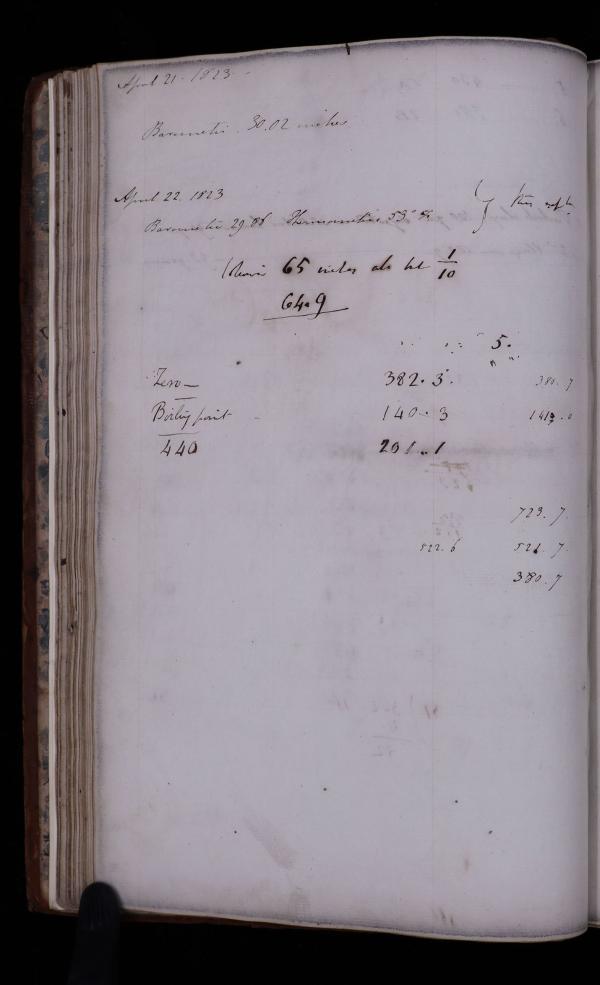 April 21 - 1823 -
Barometer . 30.02 inches
April 22. 1823
Barometer 29.86 Thermometer 53°
65 inches 1/10
64.9
5.
Zero — 382.3. 380.7
Boiling point - 140.3 141.0
440 201.1
723.7.
522.6 521.7.
380.7